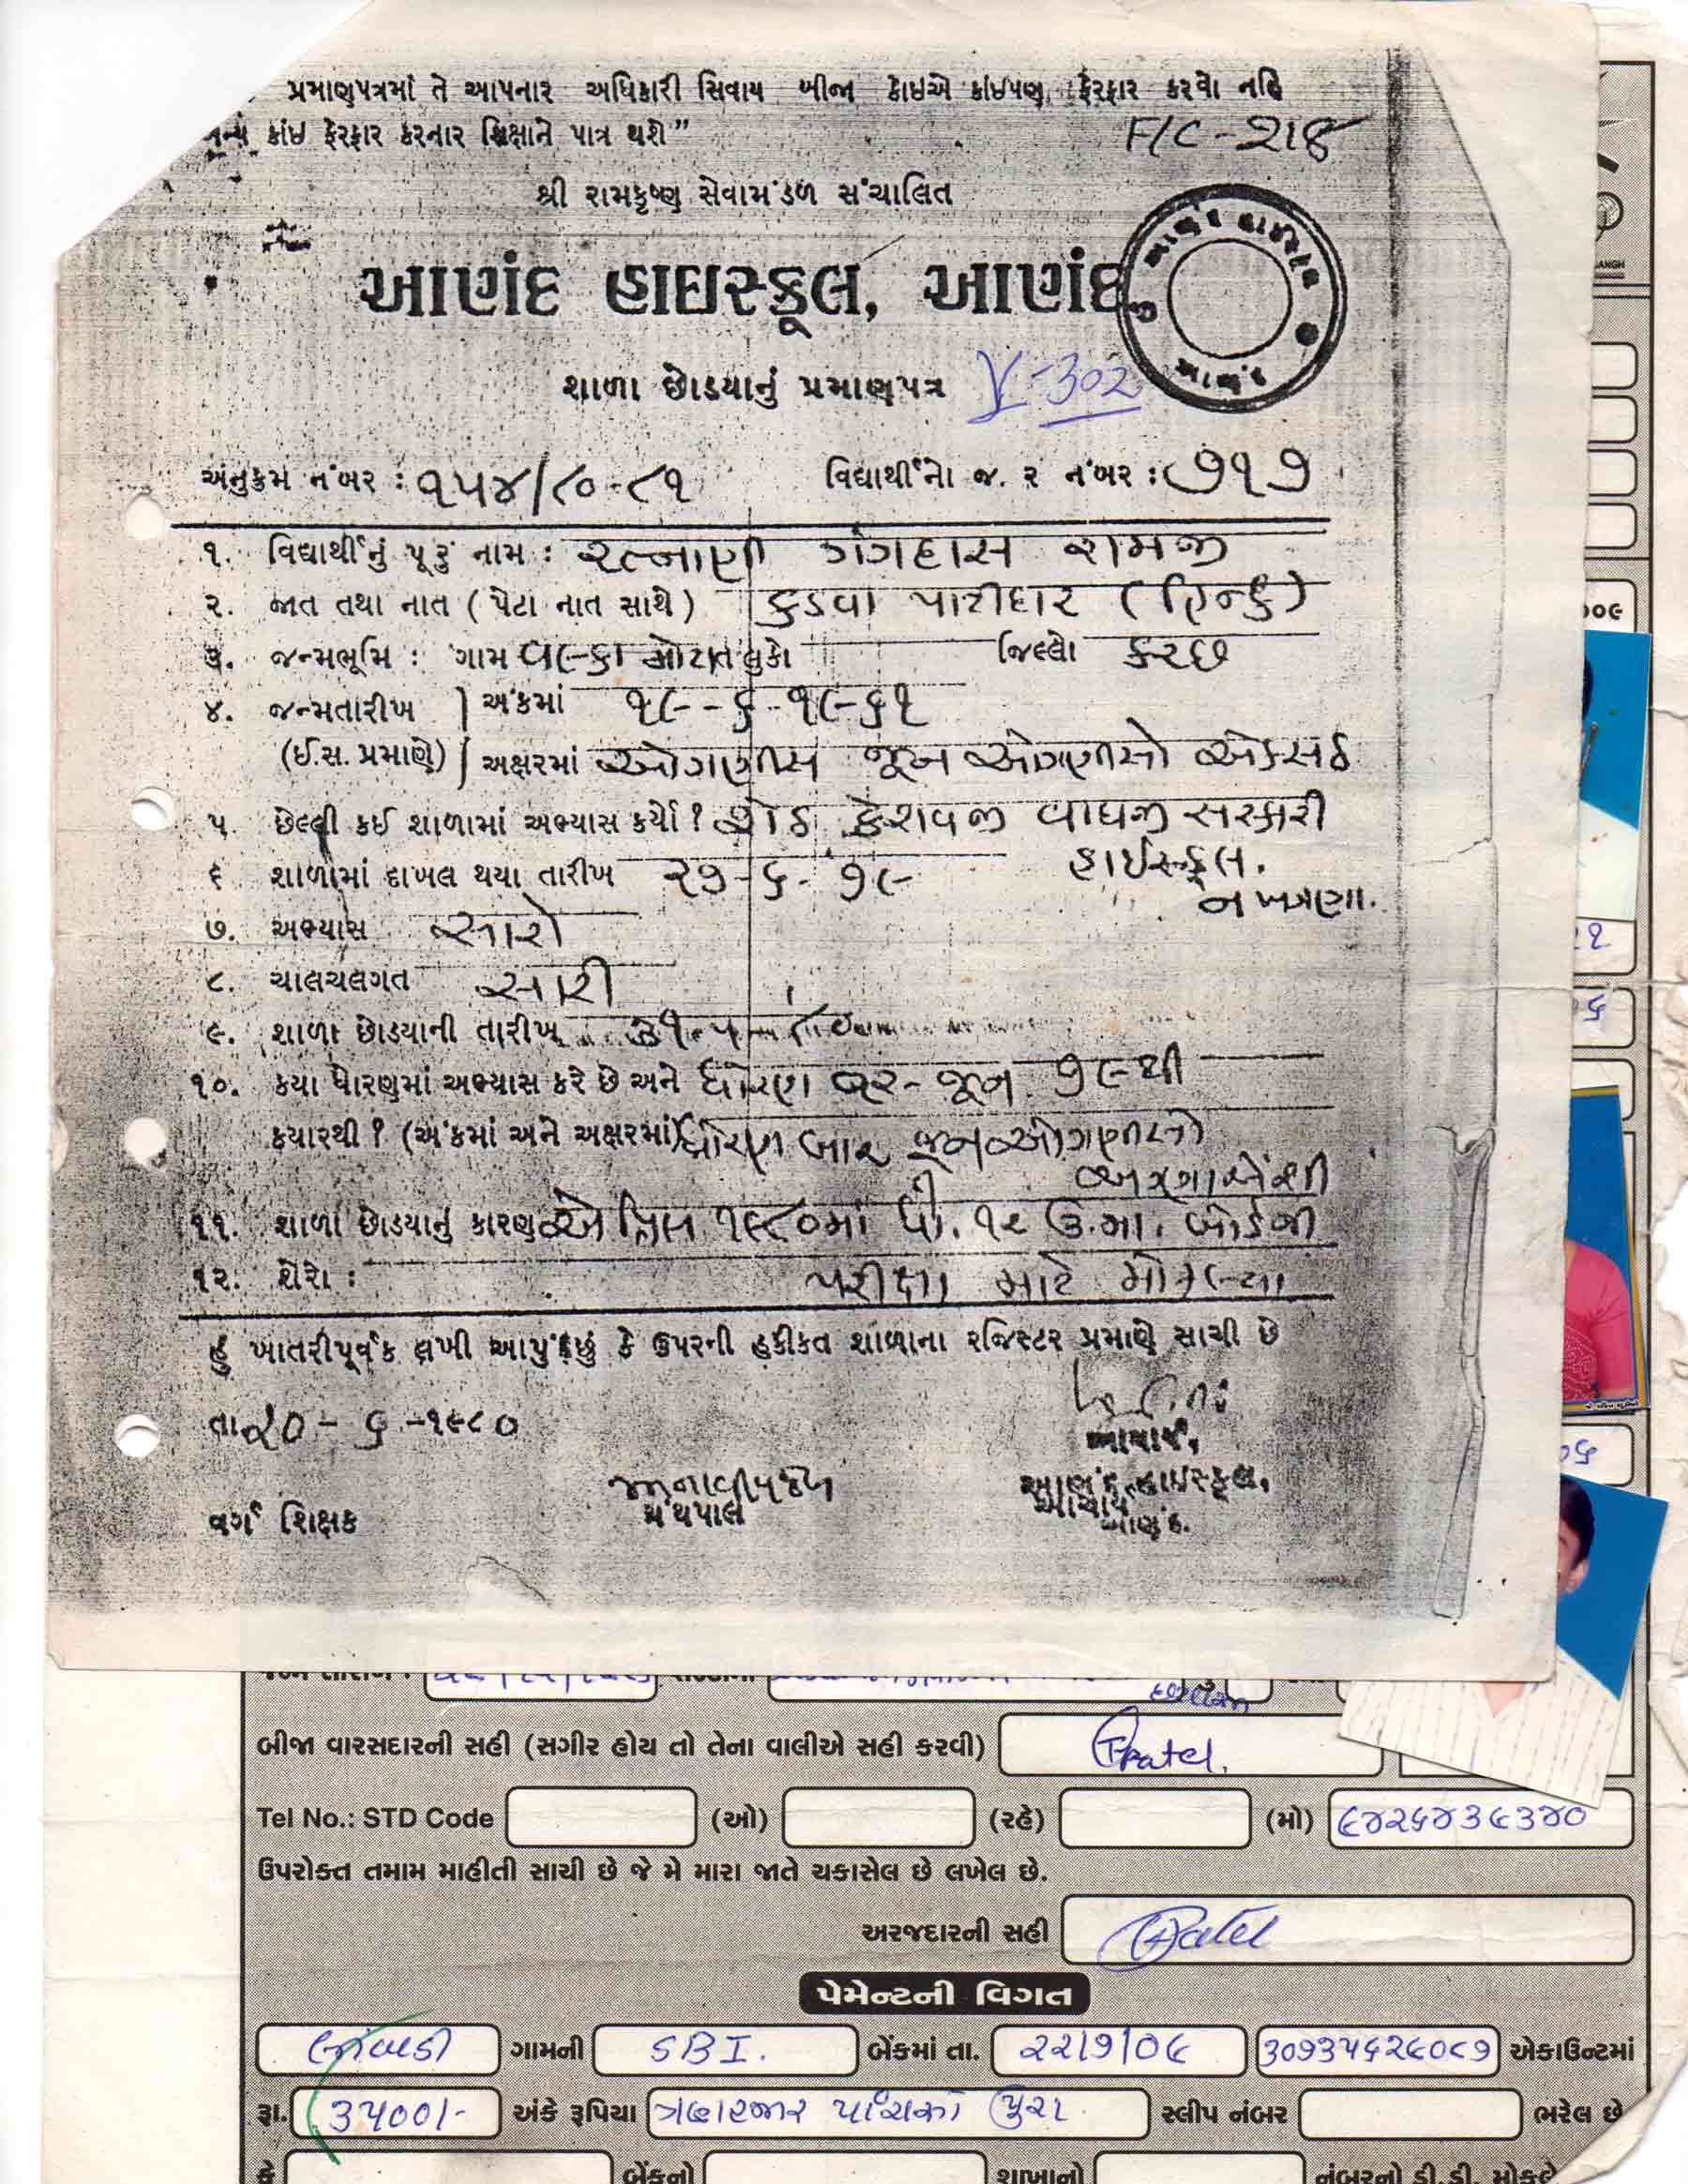 પ્રમાણપત્રમાં તે આપનાર અધિકારી સિવાય બીજા કોઇએ કાંઇપણ ફેરફાર કરવો નહિ
અન્ય કાંઇ ફેરફાર કરનાર શિક્ષાને પાત્ર થશે”
F/C - 218
શ્રી રામકૃષ્ણ સેવામંડળ સંચાલિત
આણંદ હાઇસ્કૂલ, આણંદ
શાળા છોડયાનું પ્રમાણપત્ર V-302
અનુક્રમ નંબર : ૧૫૪/૮૦-૮૧ વિદ્યાર્થીનો જ. ર નંબર : ૭૧૭
૧. વિદ્યાર્થીનું પૂરું નામ : રત્નાણી ગંગદાસ રામજી
૨. જાત તથા નાત ( પેટા નાત સાથે ) કડવા પાટીદાર ( હિન્દુ )
૩. જન્મભૂમિ : ગામ વલ્કા મોટા તાલુકો જિલ્લો કચ્છ
૪. જન્મતારીખ અંકમાં ૧૯-૬-૧૯૬૧
(ઈ.સ. પ્રમાણે) અક્ષરમાં ઓગણીસ જૂન ઓગણીસો એકસઠ
૫ છેલ્લી કઈ શાળામાં અભ્યાસ કર્યો ? શેઠ કેશવજી વાઘજી સરકારી
હાઈસ્કૂલ.
નખત્રાણા.
૬ શાળામાં દાખલ થયા તારીખ ૨૭-૬-૭૯
૭. અભ્યાસ સારો
૮. ચાલચલગત સારી
૯. શાળા છોડયાની તારીખ ૩૧-૫-૮૦
૧૦. કયા ધોરણમાં અભ્યાસ કરે છે અને ધોરણ ૧૨ - જૂન ૭૯થી
કયારથી ? (અંકમાં અને અક્ષરમાં) ધોરણ બાર જૂન ઓગણીસો
અગણાએંશી
૧૧. શાળા છોડયાનું કારણ એપ્રિલ ૧૯૮૦માં ધો. ૧૨ ઉ.મા. બોર્ડની
૧૨. શેરો : પરીક્ષા માટે મોકલ્યા
હું ખાતરીપૂર્વક લખી આપું છું કે ઉપરની હકીકત શાળાના રજિસ્ટર પ્રમાણે સાચી છે
તા ૨૦ - ૬ -૧૯૮૦
આચાર્ય,
આણંદ હાઇસ્કૂલ,
આણંદ.
વર્ગ શિક્ષક ગ્રંથપાલ આચાર્ય
બીજા વારસદારની સહી (સગીર હોય તો તેના વાલીએ સહી કરવી) Patel.
Tel No.: STD Code (ઓ) (રહે) (મો) ૯૪૨૬૪૩૯૩૪૦
ઉપરોક્ત તમામ માહીતી સાચી છે જે મે મારા જાતે ચકાસેલ છે લખેલ છે.
અરજદારની સહી Patel
પેમેન્ટની વિગત
ગામની SBI. બેંકમાં તા. ૨૨/૭/૦૯ ૩૦૧૩૫૬૨૯૦૮૭ એકાઉન્ટમાં
રૂા. ૩૫૦૦/- અંકે રૂપિયા ત્રણહજાર પાંચસો પુરા સ્લીપ નંબર ભરેલ છે
કે બેંકનો શાખાનો નંબરનો ડી.ડી. મોકલે